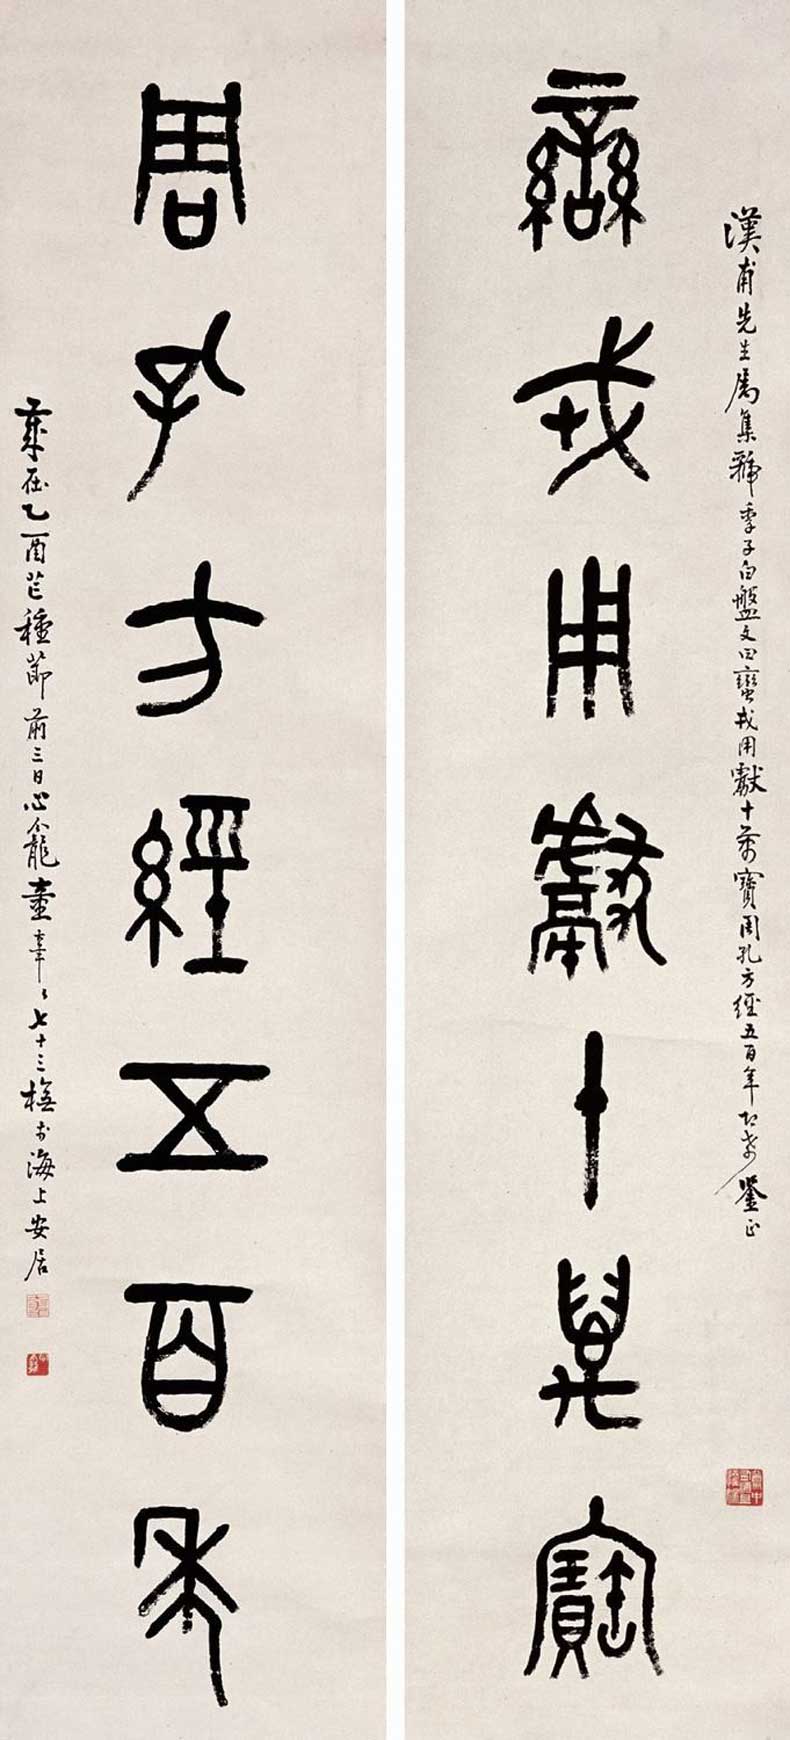 漢甫先生属集虢季子白盤文曰蠻戎用獻十萬寶周孔方經五百年即希鑒正
䜌戎用獻十萬寶
周孔方經五百年
歲在乙酉芒種節前三日心龕童大年年七十三橅於海上安居